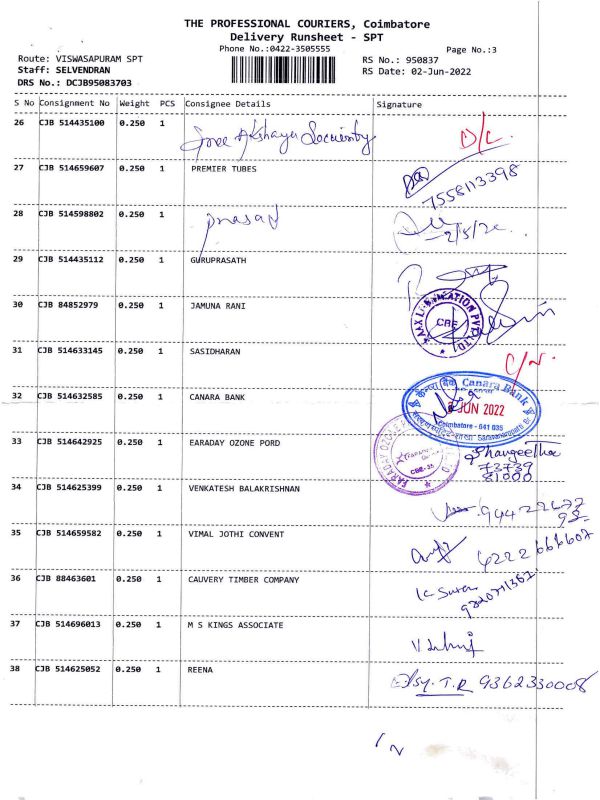 THE PROFESSIONAL COURIERS, Coimbatore
Delivery Runsheet - SPT
Phone No.:0422-3505555
Page No.:3
Route: VISWASAPURAM SPT
RS No.: 950837
Staff: SELVENDRAN
RS Date: 02-Jun-2022
DRS No.: DCJB95083703
S No Consignment No Weight PCS Consignee Details Signature
26 CJB 514435100 0.250 1 Sree Akshaya D/L.
27 CJB 514659607 0.250 1 PREMIER TUBES
7558113398
28 CJB 514598802 0.250 1 prasad
29 CJB 514435112 0.250 1 GURUPRASATH
30 CJB 84852979 0.250 1 JAMUNA RANI
CBE
31 CJB 514633145 0.250 1 SASIDHARAN
32 CJB 514632585 0.250 1 CANARA BANK
Canara Bank
JUN 2022
Coimbatore - 641 035
33 CJB 514642925 0.250 1 EARADAY OZONE PORD
FARADAY OZONE
CBE-35
Shangeetha
73739
81000
34 CJB 514625399 0.250 1 VENKATESH BALAKRISHNAN
35 CJB 514659582 0.250 1 VIMAL JOTHI CONVENT
4222666607
36 CJB 88463601 0.250 1 CAUVERY TIMBER COMPANY
37 CJB 514696013 0.250 1 M S KINGS ASSOCIATE
38 CJB 514625052 0.250 1 REENA
Sy. T.R 9362330008